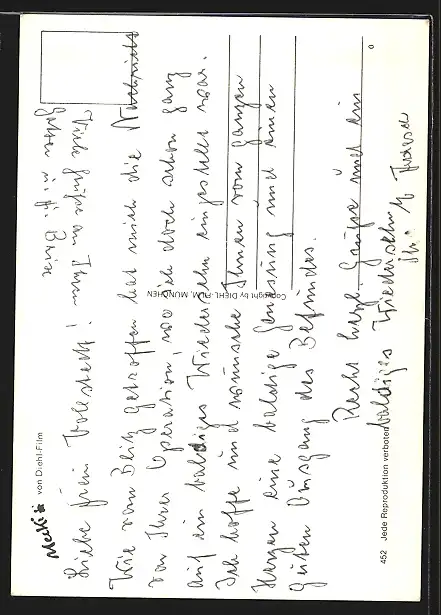 Mecki von Diehl-Film
Liebe Frau
Wie vom Blitz getroffen hat mich die Nachricht
von Ihrer Operation, wo ich doch schon ganz
auf ein baldiges Wiedersehn eingestellt war.
Ich hoffe und wünsche Ihnen vom ganzen
Herzen eine baldige Genesung und einen
guten Ausgang des Befundes.
Recht herzl. Grüße und ein
baldiges Wiedersehn
Ihr
Viele Grüße an Ihren
Copyright by DIEHL-FILM, MÜNCHEN
452 Jede Reproduktion verboten